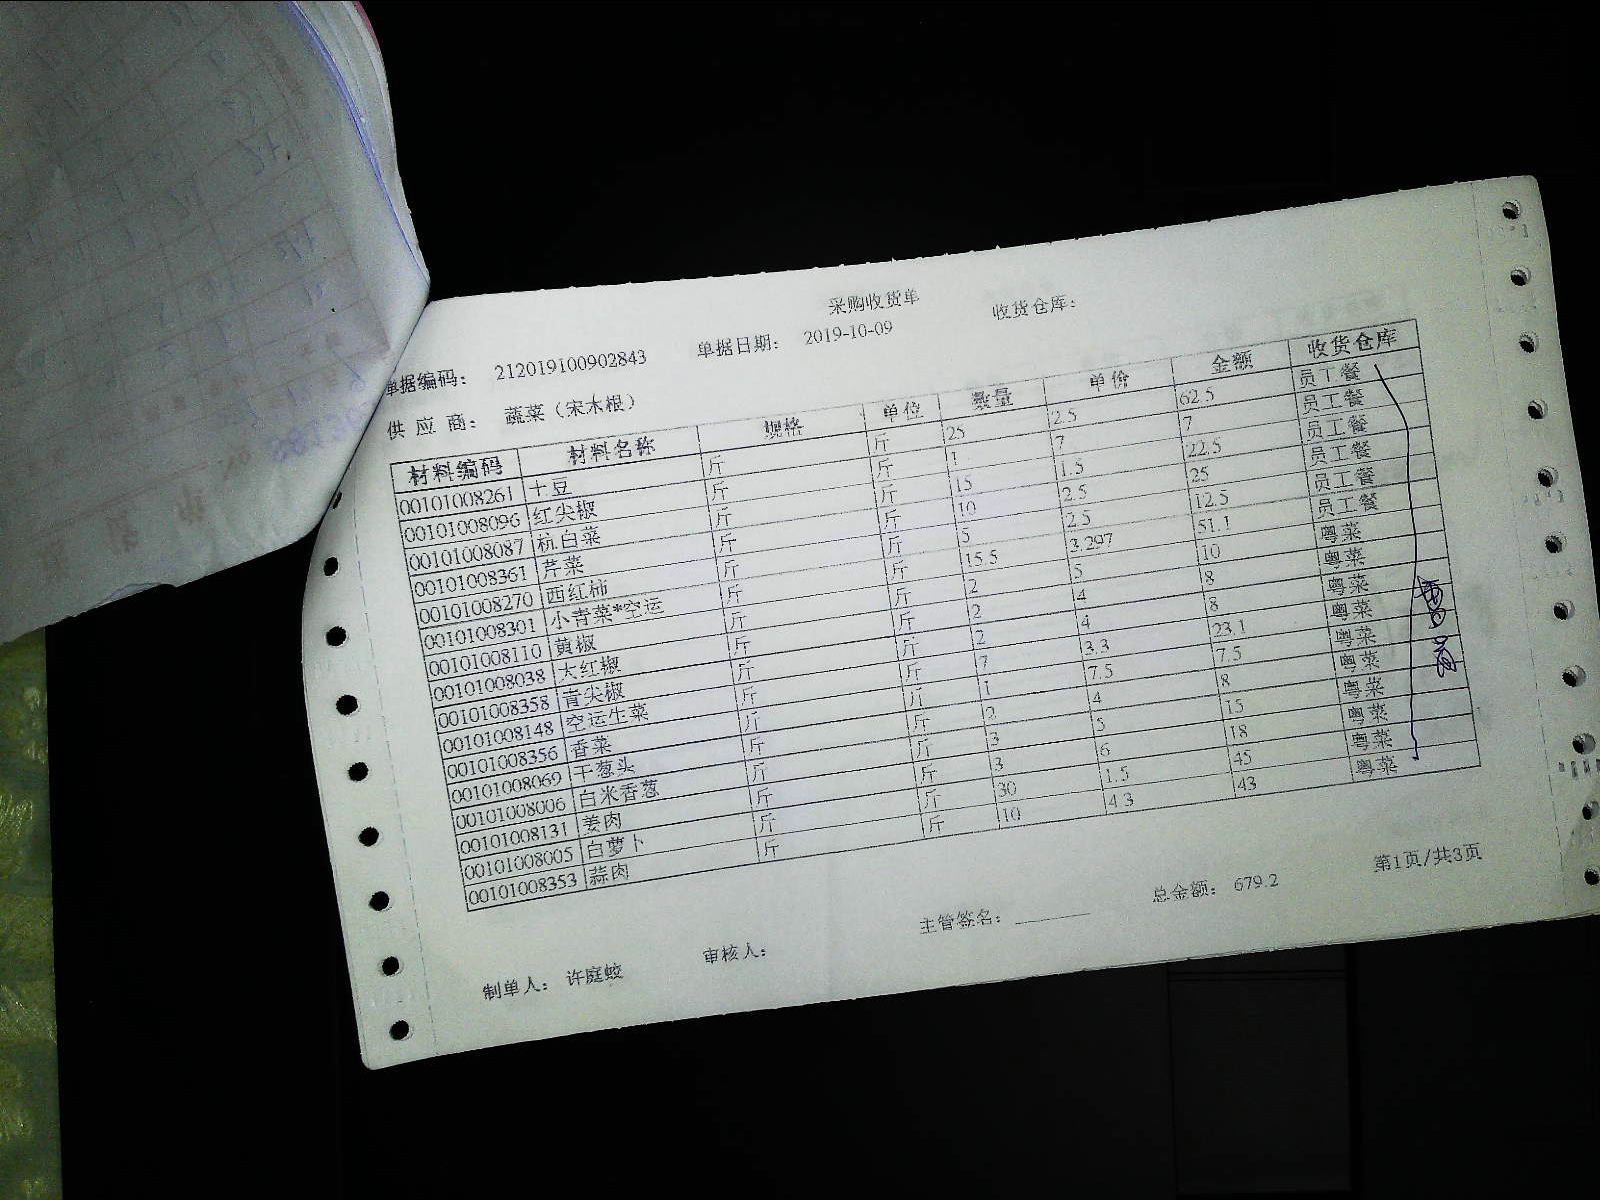 采购收货单
单据编码： 212019100902843 单据日期： 2019-10-09 收货仓库：
供 应 商： 蔬菜（宋木根）
材料编码 材料名称 规格 单位 数量 单价 金额 收货仓库
00101008261 土豆 斤 斤 25 2.5 62.5 员工餐
00101008096 红尖椒 斤 斤 1 7 7 员工餐
00101008087 杭白菜 斤 斤 15 1.5 22.5 员工餐
00101008361 芹菜 斤 斤 10 2.5 25 员工餐
00101008270 西红柿 斤 斤 5 2.5 12.5 员工餐
00101008301 小青菜*空运 斤 斤 15.5 3.297 51.1 员工餐
00101008110 黄椒 斤 斤 2 5 10 粤菜
00101008038 大红椒 斤 斤 2 4 8 粤菜
00101008358 青尖椒 斤 斤 2 4 8 粤菜
00101008148 空运生菜 斤 斤 7 3.3 23.1 粤菜
00101008356 香菜 斤 斤 1 7.5 7.5 粤菜
00101008069 干葱头 斤 斤 2 4 8 粤菜
00101008006 白米香葱 斤 斤 3 5 15 粤菜
00101008131 姜肉 斤 斤 3 6 18 粤菜
00101008005 白萝卜 斤 斤 30 1.5 45 粤菜
00101008353 蒜肉 斤 斤 10 4.3 43 粤菜
总金额： 679.2 第1页/共3页
制单人： 许庭蛟 审核人： 主管签名：